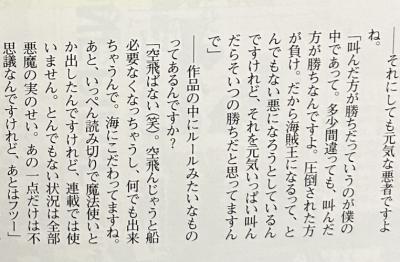 ――それにしても元気な悪者ですよ
ね。
「叫んだ方が勝ちだっていうのが僕の
中であって。多少間違ってても、叫んだ
方が勝ちなんですよ。圧倒された方
が負け。だから海賊王になるって、と
んでもない悪になろうとしているん
ですけれど、それを元気いっぱい叫ん
だらそいつの勝ちだと思ってますん
で」
――作品の中にルールみたいなもの
ってあるんですか？
「空飛ばない（笑）。空飛んじゃうと船
必要なくなっちゃうし、何でも出来
ちゃうんで。海にこだわってますね。
あと、いっぺん読み切りで魔法使いと
か出したんですけれど、連載では使
いません。とんでもない状況は全部
悪魔の実のせい。あの一点だけは不
思議なんですけれど、あとはフツー」